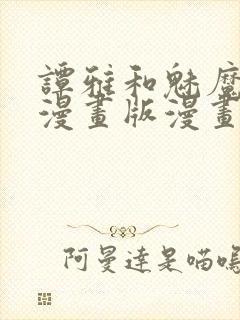 譚雅和魅魔
漫畫版漫畫
阿曼達是喵嗚